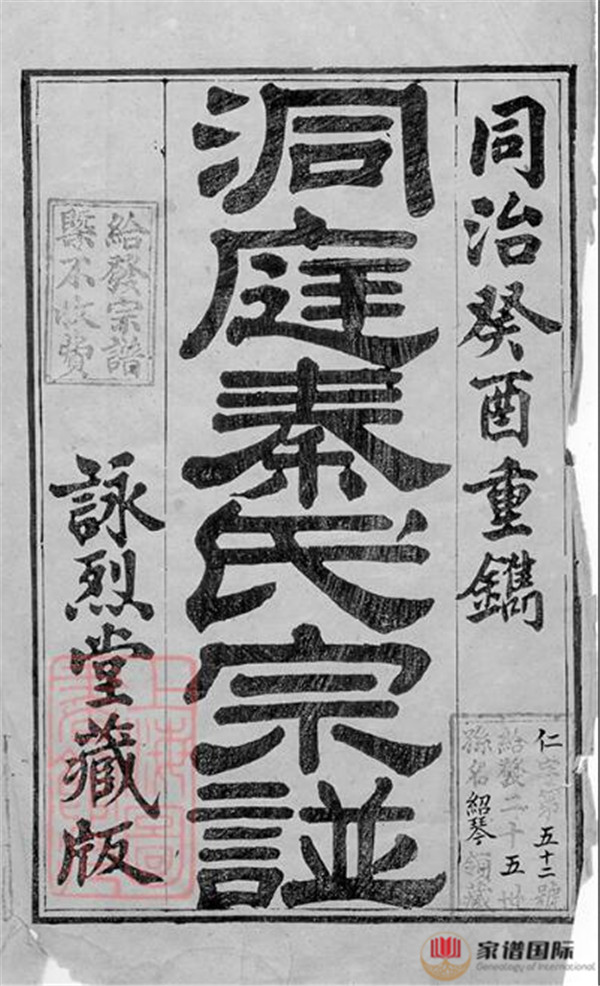 同治癸酉重鐫
仁字第五十二號
給發二十五世
孫名紹琴領藏
洞庭秦氏宗譜
給發宗譜
槩不收費
詠烈堂藏版
家谱国际
Genealogy of International